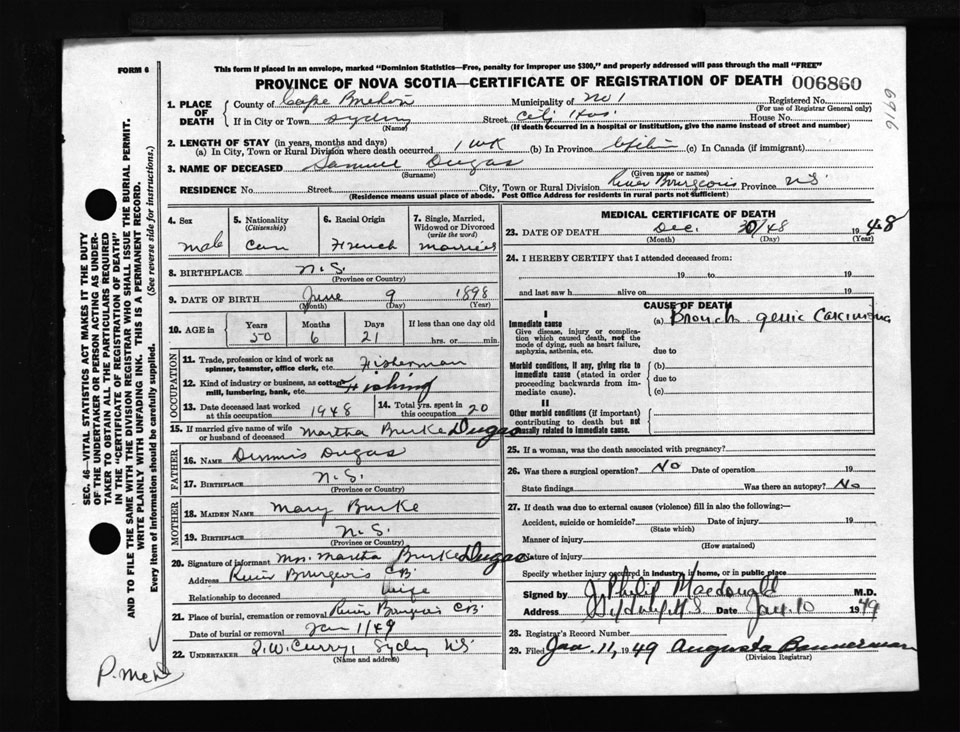 FORM 6
This form if placed in an envelope, marked "Dominion Statistics—Free, penalty for improper use $300," and properly addressed will pass through the mail "FREE"
PROVINCE OF NOVA SCOTIA—CERTIFICATE OF REGISTRATION OF DEATH 006860
6916
1. PLACE OF DEATH County of Cape Breton Municipality of No 1 Registered No.
(For use of Registrar General only)
If in City or Town Sydney Street City Hos. House No.
(Name) (If death occurred in a hospital or institution, give the name instead of street and number)
2. LENGTH OF STAY (in years, months and days)
(a) In City, Town or Rural Division where death occurred 1 wk (b) In Province Life (c) In Canada (if immigrant)
3. NAME OF DECEASED Samuel Dugas
(Surname) (Given name or names)
RESIDENCE No. Street City, Town or Rural Division River Bourgeois Province N.S.
(Residence means usual place of abode. Post Office Address for residents in rural parts not sufficient)
4. Sex 5. Nationality (Citizenship) 6. Racial Origin 7. Single, Married, Widowed or Divorced (write the word)
male Can French married
8. BIRTHPLACE N.S.
(Province or Country)
9. DATE OF BIRTH June 9 1898
(Month) (Day) (Year)
10. AGE in Years Months Days If less than one day old
50 6 21 hrs. or min.
OCCUPATION
11. Trade, profession or kind of work as spinner, teamster, office clerk, etc. Fisherman
12. Kind of industry or business, as cotton mill, lumbering, bank, etc. Fishing
13. Date deceased last worked at this occupation 1948 14. Total yrs. spent in this occupation 20
15. If married give name of wife or husband of deceased Martha Burke Dugas
FATHER
16. NAME Dennis Dugas
17. BIRTHPLACE N.S.
(Province or Country)
MOTHER
18. MAIDEN NAME Mary Burke
19. BIRTHPLACE N.S.
(Province or Country)
20. Signature of informant Mrs. Martha Burke Dugas
Address River Bourgeois C.B.
Relationship to deceased wife
21. Place of burial, cremation or removal River Bourgeois C.B.
Date of burial or removal Jan 1/49
22. UNDERTAKER T.W. Curry, Sydney N.S.
(Name and address)
MEDICAL CERTIFICATE OF DEATH
23. DATE OF DEATH Dec. 30/48 1948
(Month) (Day) (Year)
24. I HEREBY CERTIFY that I attended deceased from:
19 to 19
and last saw h alive on 19
CAUSE OF DEATH
I
Immediate cause (a) Bronchogenic Carcinoma
Give disease, injury or complication which caused death, not the mode of dying, such as heart failure, asphyxia, asthenia, etc. due to
Morbid conditions, if any, giving rise to immediate cause (stated in order proceeding backwards from immediate cause). (b)
due to
(c)
II
Other morbid conditions (if important) contributing to death but not causally related to immediate cause.
25. If a woman, was the death associated with pregnancy?
26. Was there a surgical operation? No Date of operation 19
State findings Was there an autopsy? No
27. If death was due to external causes (violence) fill in also the following:—
Accident, suicide or homicide? Date of injury 19
(State which)
Manner of injury
(How sustained)
Nature of injury
Specify whether injury occurred in industry, in home, or in public place
Signed by J. Philip Macdonald M.D.
Address Sydney N.S. Date Jan. 10 1949
28. Registrar's Record Number
29. Filed Jan. 11, 1949 Augusta Bannerman
(Division Registrar)
SEC. 46—VITAL STATISTICS ACT MAKES IT THE DUTY
OF THE UNDERTAKER OR PERSON ACTING AS UNDERTAKER
TO OBTAIN ALL THE PARTICULARS REQUIRED
IN THE "CERTIFICATE OF REGISTRATION OF DEATH"
AND TO FILE THE SAME WITH THE DIVISION REGISTRAR WHO SHALL ISSUE THE BURIAL PERMIT.
WRITE PLAINLY WITH UNFADING INK. THIS IS A PERMANENT RECORD.
Every item of Information should be carefully supplied. (See reverse side for instructions.)